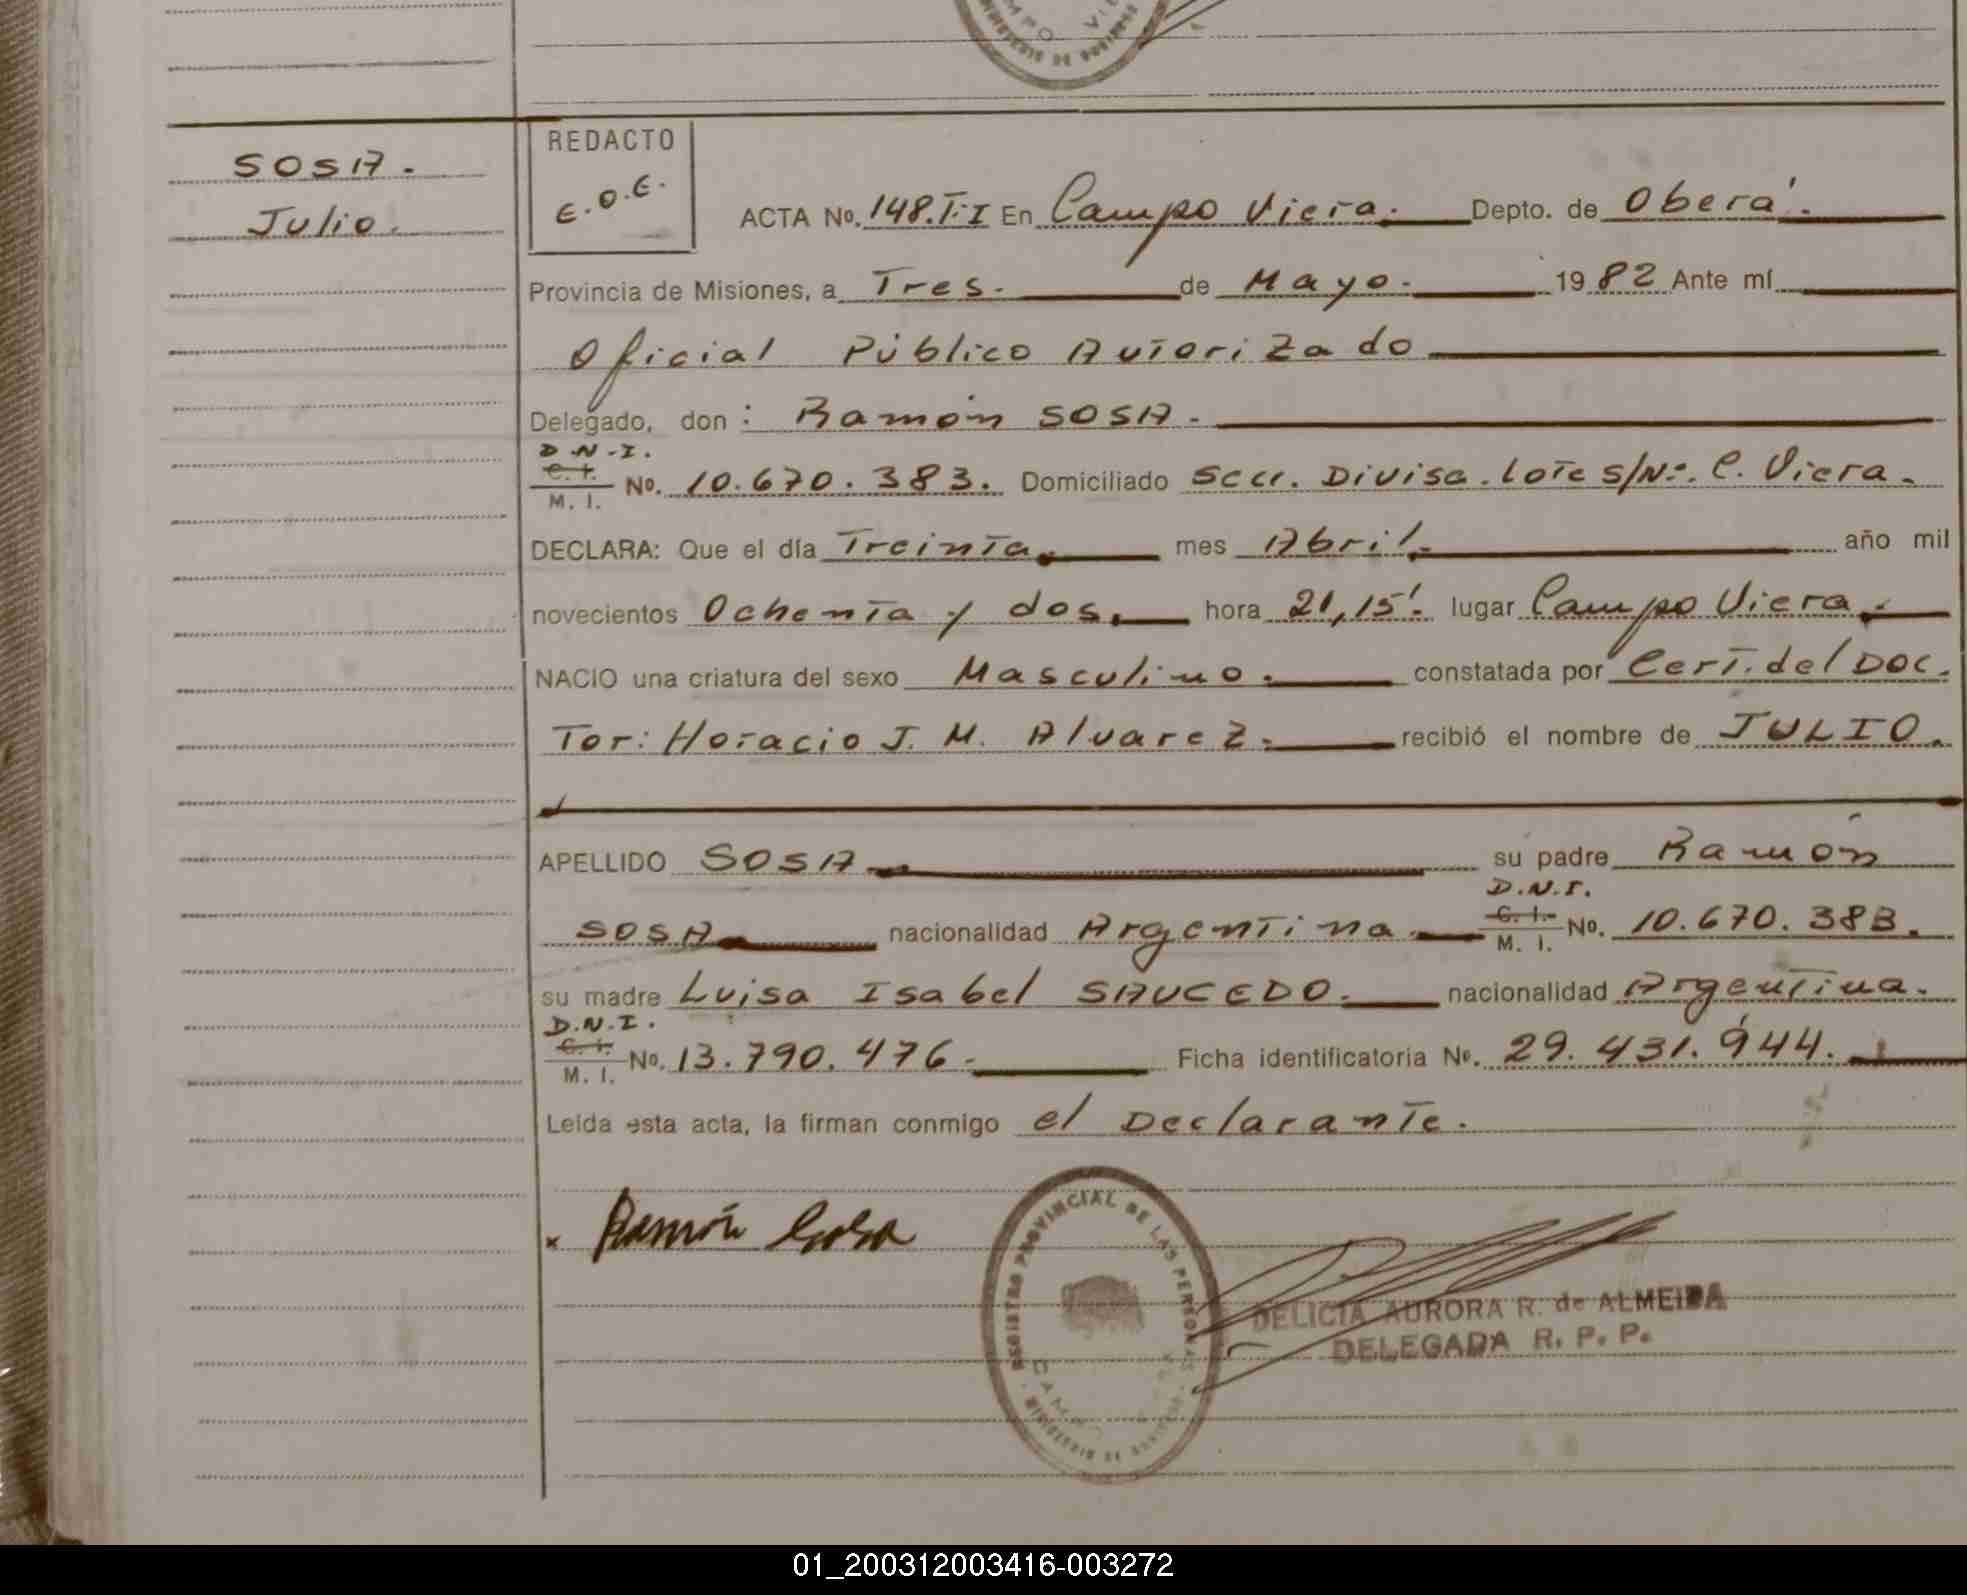 MPO VIE
MINISTERIO DE GOBIERNO
SOSA.
Julio.
REDACTO
E.O.E.
ACTA No. 148.T:I En Campo Viera. Depto. de Oberá.
Provincia de Misiones, a Tres. de Mayo. 1982 Ante mí
Oficial Público Autorizado
Delegado, don : Ramón SOSA.
D.N.I.
C. I.
M. I. No. 10.670.383. Domiciliado Secc. Divisa. Lote S/Nº. C. Viera.
DECLARA: Que el día Treinta. mes Abril. año mil
novecientos Ochenta y dos. hora 21,15'. lugar Campo Viera.
NACIO una criatura del sexo Masculino. constatada por Cert. del DOC.
Tor: Horacio J. M. Alvarez. recibió el nombre de JULIO.
APELLIDO SOSA su padre Ramón
D.N.I.
SOSA nacionalidad Argentina. C. I. M. I. No. 10.670.383.
su madre Luisa Isabel SAUCEDO. nacionalidad Argentina.
D.N.I.
C. I.
M. I. No. 13.790.476. Ficha identificatoria No. 29.431.944.
Leída esta acta, la firman conmigo el Declarante.
x Ramón Sosa
REGISTRO PROVINCIAL DE LAS PERSONAS
CAMPO
DELICIA AURORA R. de ALMEIDA
DELEGADA R. P. P.
01_200312003416-003272